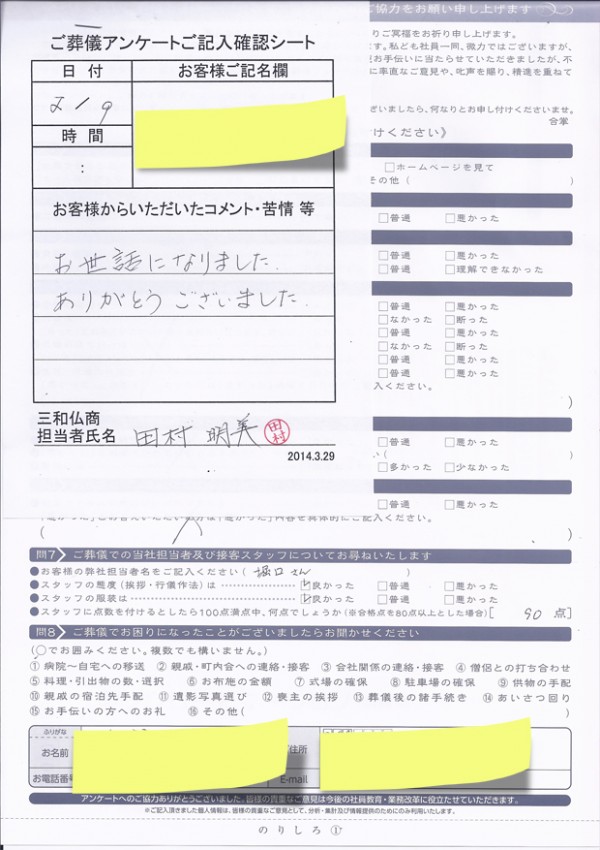 ご協力をお願い申し上げます
ご葬儀アンケートご記入確認シート
りご冥福をお祈り申し上げます。
す。私ども社員一同、微力ではございますが、
お手伝いに当たらせていただきましたが、不
に率直なご意見や、叱声を賜り、精進を重ねて
ざいましたら、何なりとお申し付けくださいませ。
合掌
けください》
日付
お客様ご記名欄
2/9
時間
:
お客様からいただいたコメント・苦情 等
お世話になりました.
ありがとうございました.
三和仏商
担当者氏名 田村 明美 田村
2014.3.29
□ホームページを見て
その他( )
□普通 □悪かった
□普通 □悪かった
□普通 □理解できなかった
□普通 □悪かった
□なかった □断った
□普通 □悪かった
□なかった □断った
□普通 □悪かった
□普通 □悪かった
入ください。
)
□普通 □悪かった
( )
□多かった □少なかった
□普通 □悪かった
( )
問7 ご葬儀での当社担当者及び接客スタッフについてお尋ねいたします
●お客様の弊社担当者名をご記入ください( 堀口さん )
●スタッフの態度(挨拶・行儀作法)は ☑良かった □普通 □悪かった
●スタッフの服装は ☑良かった □普通 □悪かった
●スタッフに点数を付けるとしたら100点満点中、何点でしょうか(※合格点を80点以上とした場合)[ 90 点]
問8 ご葬儀でお困りになったことがございましたらお聞かせください
(○でお囲みください。複数でも構いません。)
①病院〜自宅への移送 ②親戚・町内会への連絡・接客 ③会社関係の連絡・接客 ④僧侶との打ち合わせ
⑤料理・引出物の数・選択 ⑥お布施の金額 ⑦式場の確保 ⑧駐車場の確保 ⑨供物の手配
⑩親戚の宿泊先手配 ⑪遺影写真選び ⑫喪主の挨拶 ⑬葬儀後の諸手続き ⑭あいさつ回り
⑮お手伝いの方へのお礼 ⑯その他( )
ふりがな
お名前
住所
お電話番号
E-mail
アンケートへのご協力ありがとうございました。皆様の貴重なご意見は今後の社員教育・業務改革に役立たせていただきます。
※ご記入頂きました個人情報は、皆様の貴重なご意見として、分析・集計及び情報提供のためにのみ利用いたします。
のりしろ①